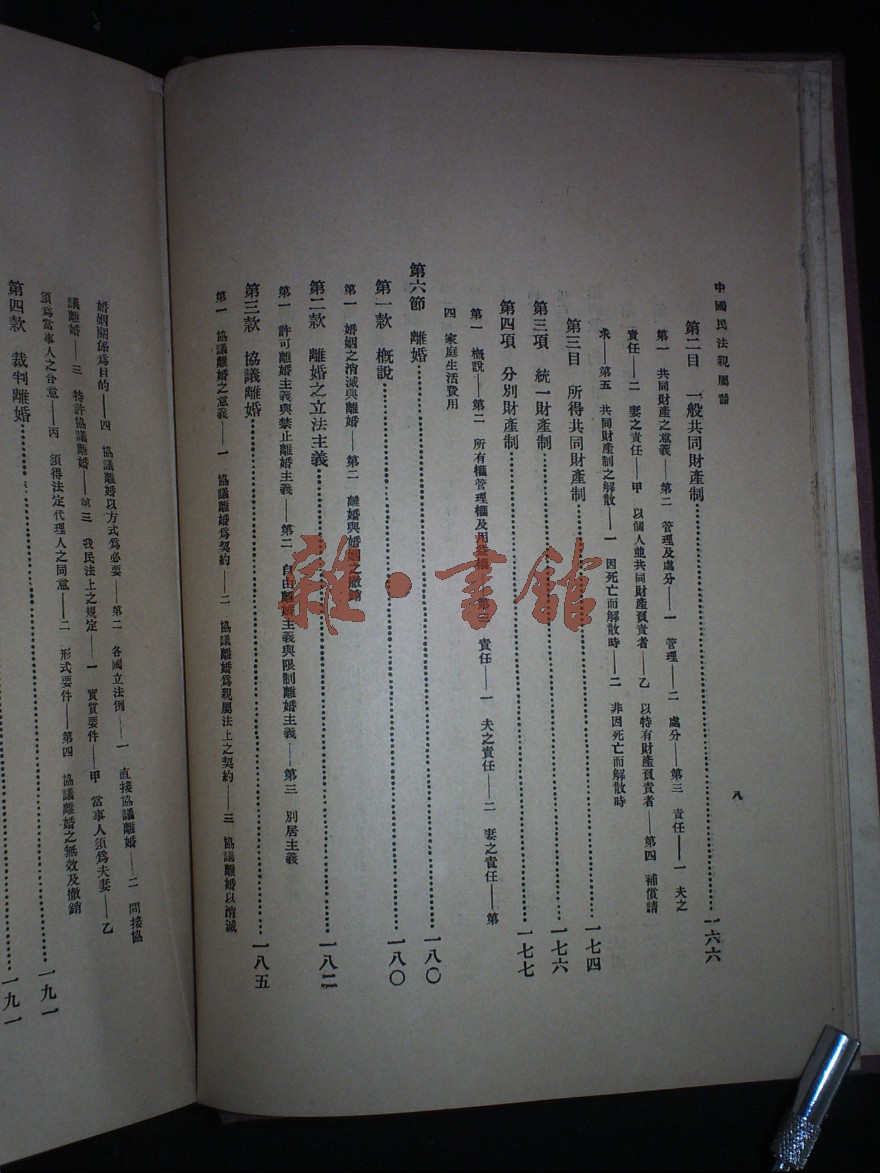 中國民法親屬論
八
第二目　一般共同財產制………一六六
第一　共同財產之意義——第二　管理及處分——一　管理——二　處分——第三　責任——一　夫之
責任——二　妻之責任——甲　以個人並共同財產負責者——乙　以特有財產負責者——第四　補償請
求——第五　共同財產制之解散——一　因死亡而解散時——二　非因死亡而解散時
第三目　所得共同財產制………一七四
第三項　統一財產制………一七六
第四項　分別財產制………一七七
第一　概說——第二　所有權管理權及用益權——第三　責任——一　夫之責任——二　妻之責任——第
四　家庭生活費用
第六節　離婚………一八〇
第一款　概說………一八〇
第一　婚姻之消滅與離婚——第二　離婚與婚姻之撤銷
第二款　離婚之立法主義………一八二
第一　許可離婚主義與禁止離婚主義——第二　自由離婚主義與限制離婚主義——第三　別居主義
第三款　協議離婚………一八五
第一　協議離婚之意義——一　協議離婚爲契約——二　協議離婚爲親屬法上之契約——三　協議離婚以消滅
婚姻關係爲目的——四　協議離婚以方式爲必要——第二　各國立法例——一　直接協議離婚——二　間接協
議離婚——三　特許協議離婚——第三　我民法上之規定——一　實質要件——甲　當事人須爲夫妻——乙
須爲當事人之合意——丙　須得法定代理人之同意——二　形式要件——第四　協議離婚之無效及撤銷
第四款　裁判離婚………一九一
一九一
雜·書館